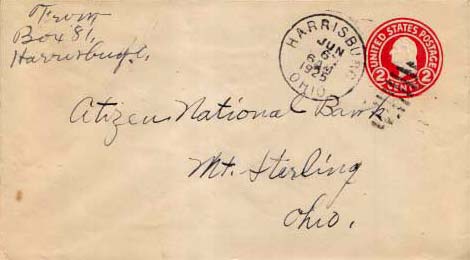 From
Box 81,
Harrisburg O.
HARRISBURG
JUN
6
6 AM
1925
OHIO
UNITED STATES POSTAGE
2 CENTS 2
Citizen National Bank
Mt. Sterling
Ohio.